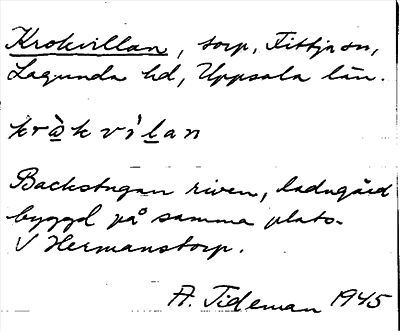 Krokvillan, torp, Fittja sn,
Lagunda hd, Uppsala län.
krò̱k vìḻan
Backstugan riven, ladugård
byggd på samma plats.
V Hermanstorp.
A. Tideman 1945